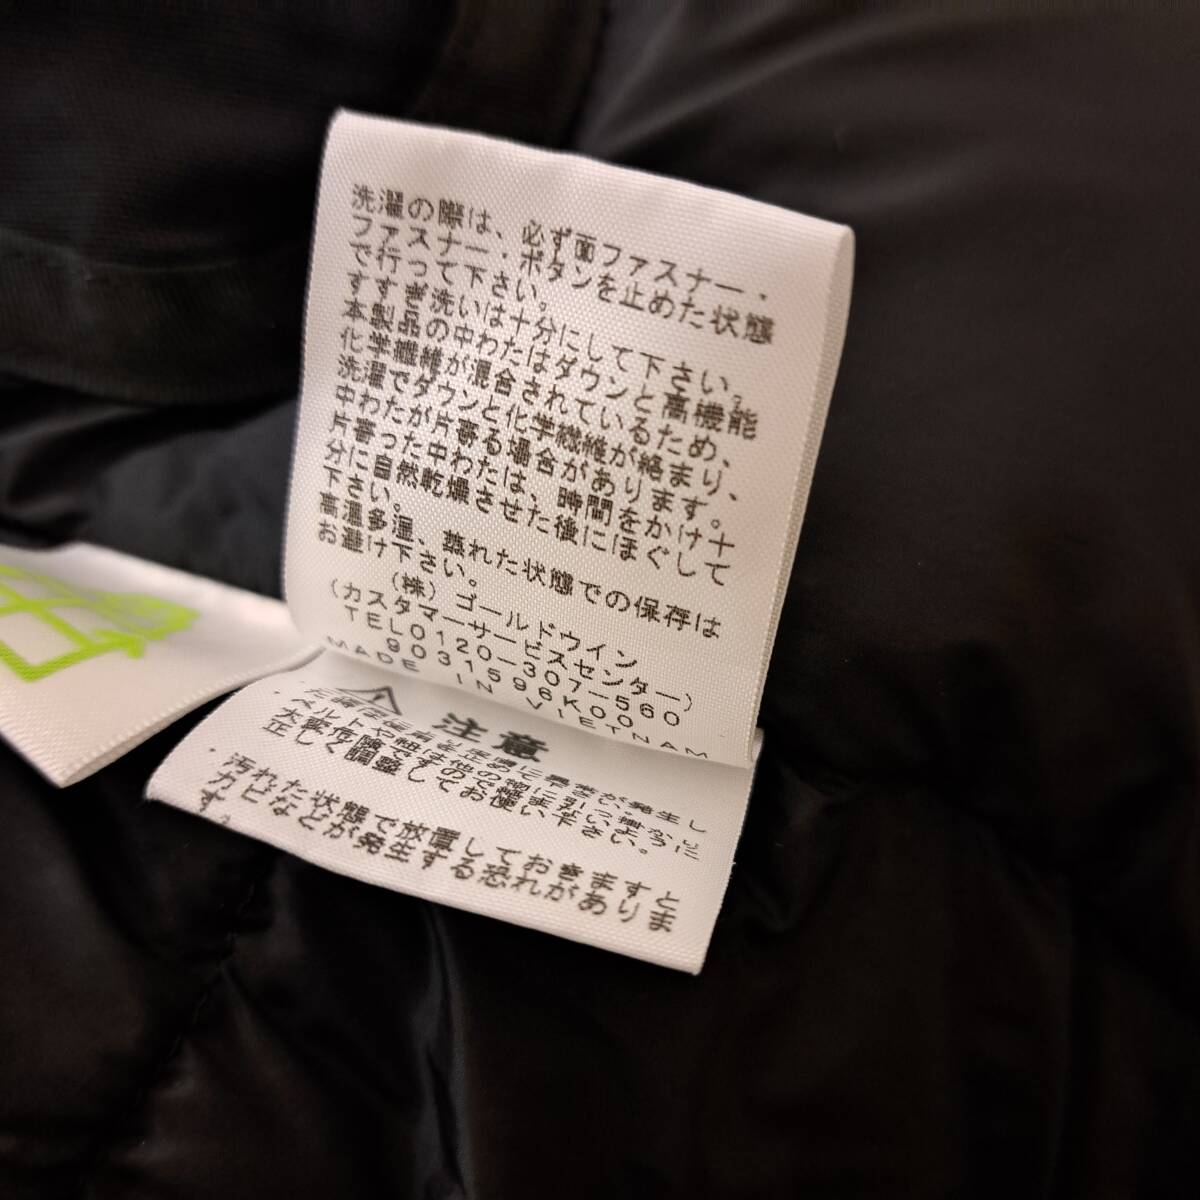 洗濯の際は、必ず面ファスナー・
ファスナー・ボタンを止めた状態
で行って下さい。
すすぎ洗いは十分にして下さい。
本製品の中わたはダウンと高機能
化学繊維が混合されているため、
洗濯でダウンと化学繊維が絡まり、
中わたが片寄る場合があります。
片寄った中わたは、時間をかけ十
分に自然乾燥させた後にほぐして
下さい。
高温多湿、蒸れた状態での保存は
お避け下さい。
(株)ゴールドウイン
(カスタマーサービスセンター)
TEL0120-307-560
9031596K00
MADE IN VIETNAM
注意
ベルトや紐は他の物に引っ掛かし
大変危険ですので絡まないように
正しく調整してお使い下さい。
汚れた状態で放置しておきますと
カビなどが発生する恐れがありま
す。